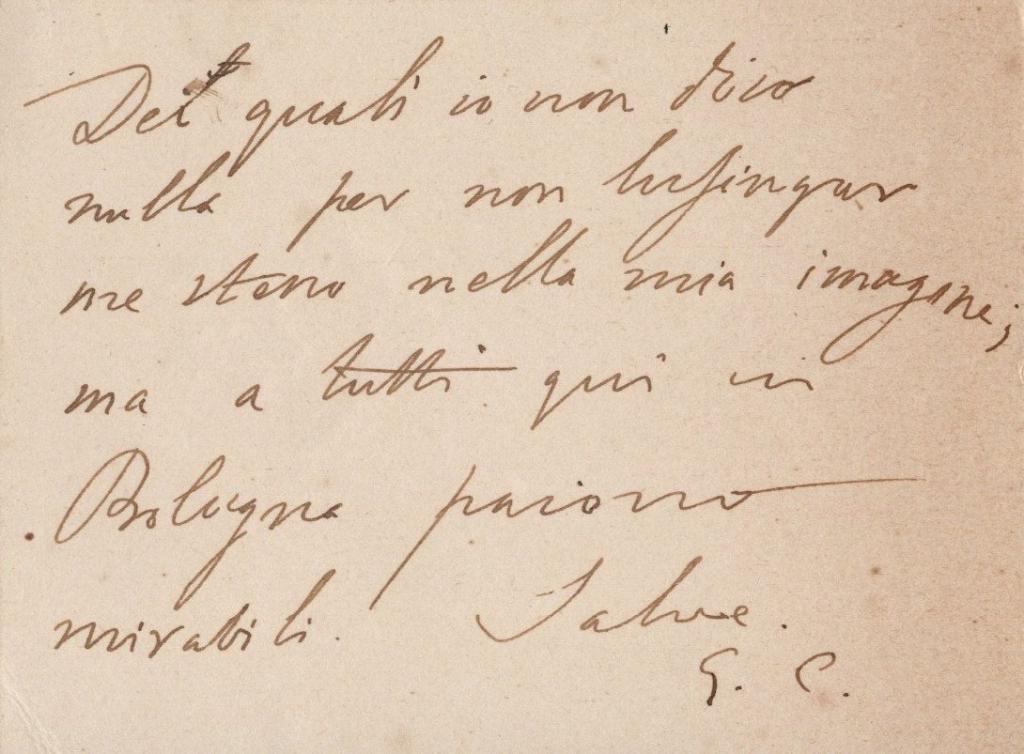 Dei quali io non dico
nulla per non lusingar
me steno nella mia imagine;
ma a tutti qui in
Bologna paiono
mirabili. Salve.
G. C.